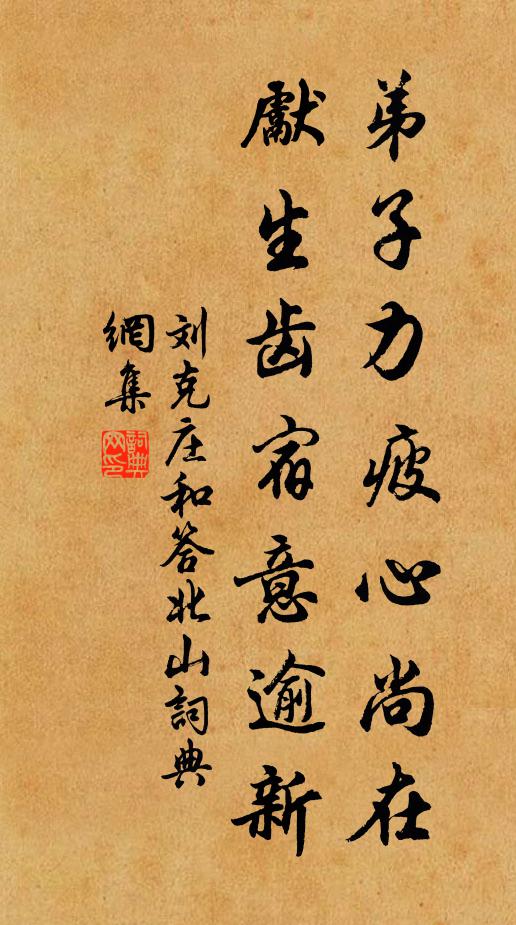 弟子力疲心尚在
獻生齿宿意逾新
刘克庄和答北山詞典
網集
詞典
网印